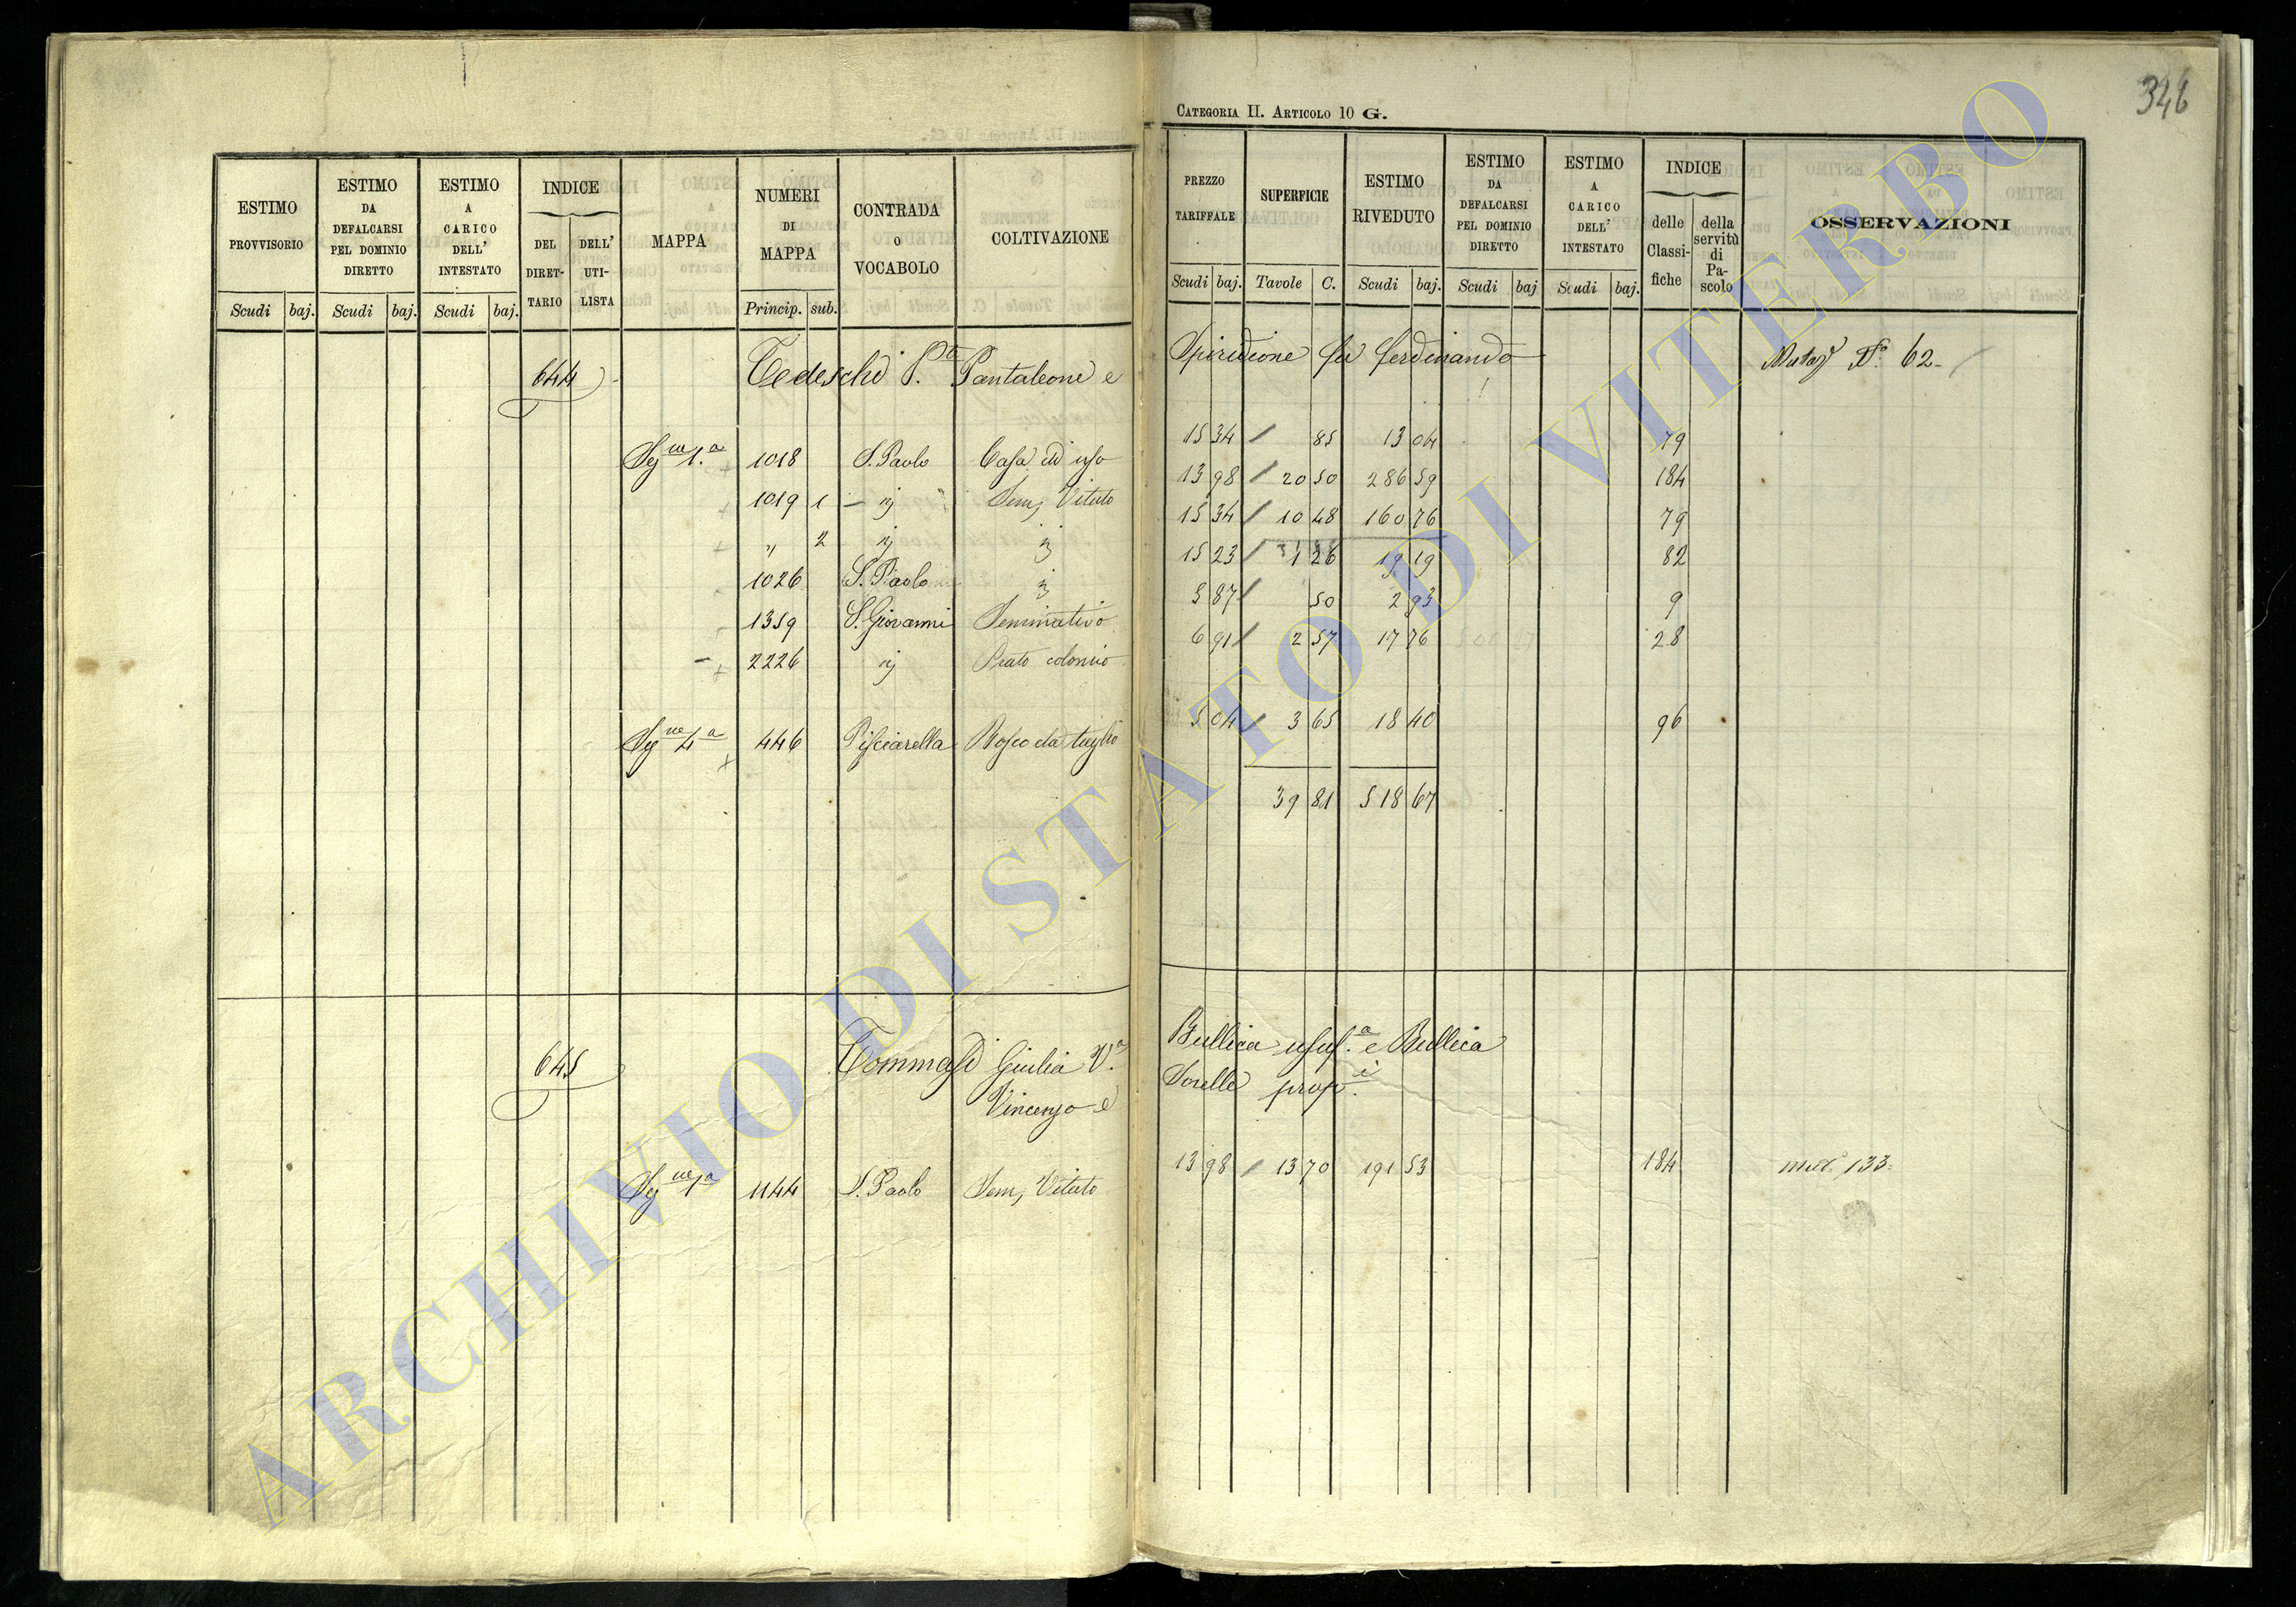 346
CATEGORIA II. ARTICOLO 10 G.
ESTIMO PROVVISORIO
ESTIMO DA DEFALCARSI PEL DOMINIO DIRETTO
ESTIMO A CARICO DELL' INTESTATO
INDICE
DEL DIRET-TARIO
DELL' UTI-LISTA
MAPPA
NUMERI DI MAPPA
CONTRADA O VOCABOLO
COLTIVAZIONE
Scudi baj. Scudi baj. Scudi baj. Princip. sub.
PREZZO TARIFFALE
SUPERFICIE
ESTIMO RIVEDUTO
ESTIMO DA DEFALCARSI PEL DOMINIO DIRETTO
ESTIMO A CARICO DELL' INTESTATO
INDICE
delle Classi-fiche
della servitù di Pa-scolo
OSSERVAZIONI
Scudi baj. Tavole C. Scudi baj. Scudi baj Scudi baj.
644 Tedeschi Pantaleone e Spiridione fu Ferdinando 62
1.a 1018 S. Paolo Casa di uso 15 34 85 13 04 79
1019 1 Sem, Vitato 13 98 20 50 286 59 184
" 2 15 34 10 48 160 76 79
1026 S. Paolo 15 23 1 26 19 19 82
1359 S. Giovanni Seminativo 5 87 50 2 93 9
2226 Prato 6 91 2 57 17 76 28
4a 446 Pisciarella Bosco da taglio 5 04 3 65 18 40 96
39 81 518 67
645 Tommasi Giulia V.a Bullica usuf.a e Bullica
Vincenzo e Sorelle prop.i
1a 1144 S. Paolo Sem, Vitato 13 98 13 70 191 53 184 133
ARCHIVIO DI STATO DI VITERBO